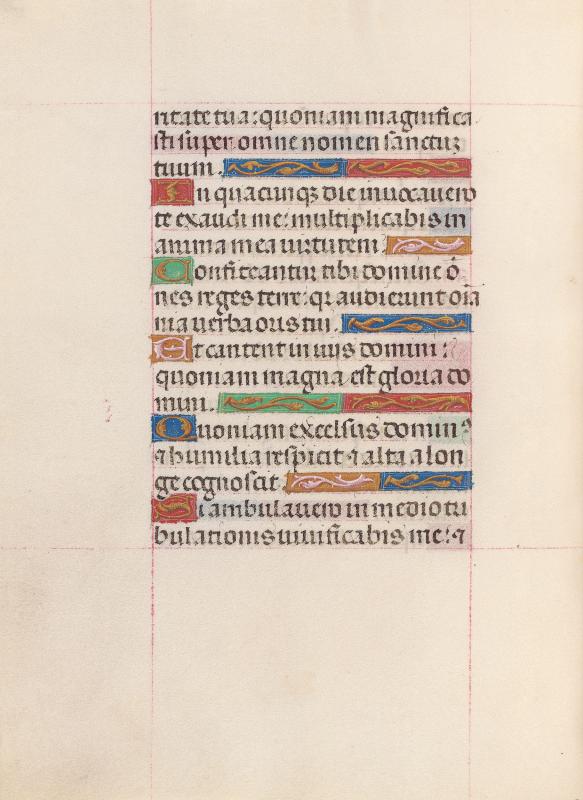 ritate tua: quoniam magnifica
sti super omne nomen sanctuʒ
tuum.
In quacunqʒ die inuocauero
te exaudi me: multiplicabis in
anima mea uirtutem.
Confiteantur tibi domine o̅
nes reges terre: qr audierunt oi̅a
ma uerba oris tui.
Et cantent in uijs domini:
quoniam magna est gloria do
mini.
Quoniam excelsus dominꝰ
⁊ humilia respicit ⁊ alta a lon
ge cognoscit.
Si ambulauero in medio tri
bulationis uiuificabis me: ⁊